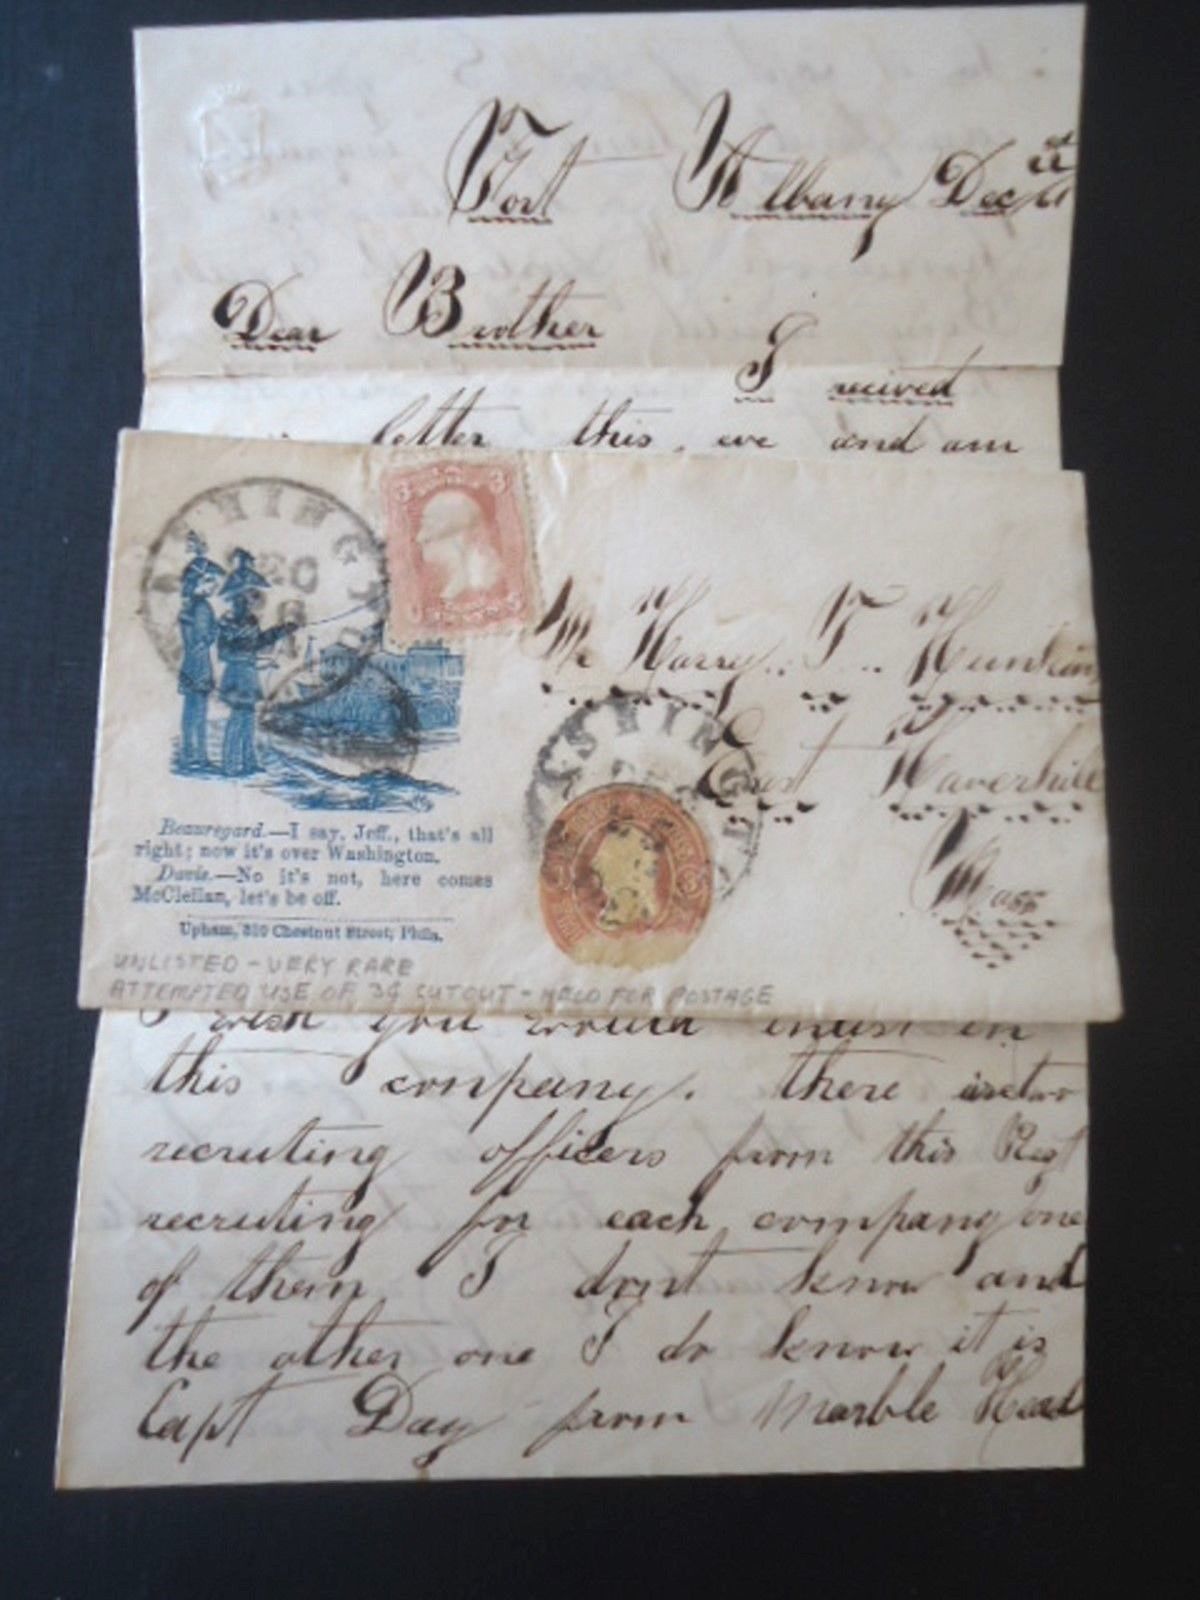 Fort Albany Dec
Dear Brother
I recived
letter this. eve and am
WASHINGTON
DEC
3 3
Mr Harry.. T.. Hunkins
East Haverhill
Mass
WASHINGT
Beauregard.—I say, Jeff., that's all
right; now it's over Washington.
Davis.—No it's not, here comes
McClellan, let's be off.
Upham, 310 Chestnut Street, Phila.
UNLISTED - VERY RARE
ATTEMPTED USE OF 3¢ CUTOUT - HELD FOR POSTAGE
I wish you would inlist in
this company. there is two
recruting officers from this Regt
recruting for each company one
of them I dont know and
the other one I do know it is
Capt Day from Marble Head